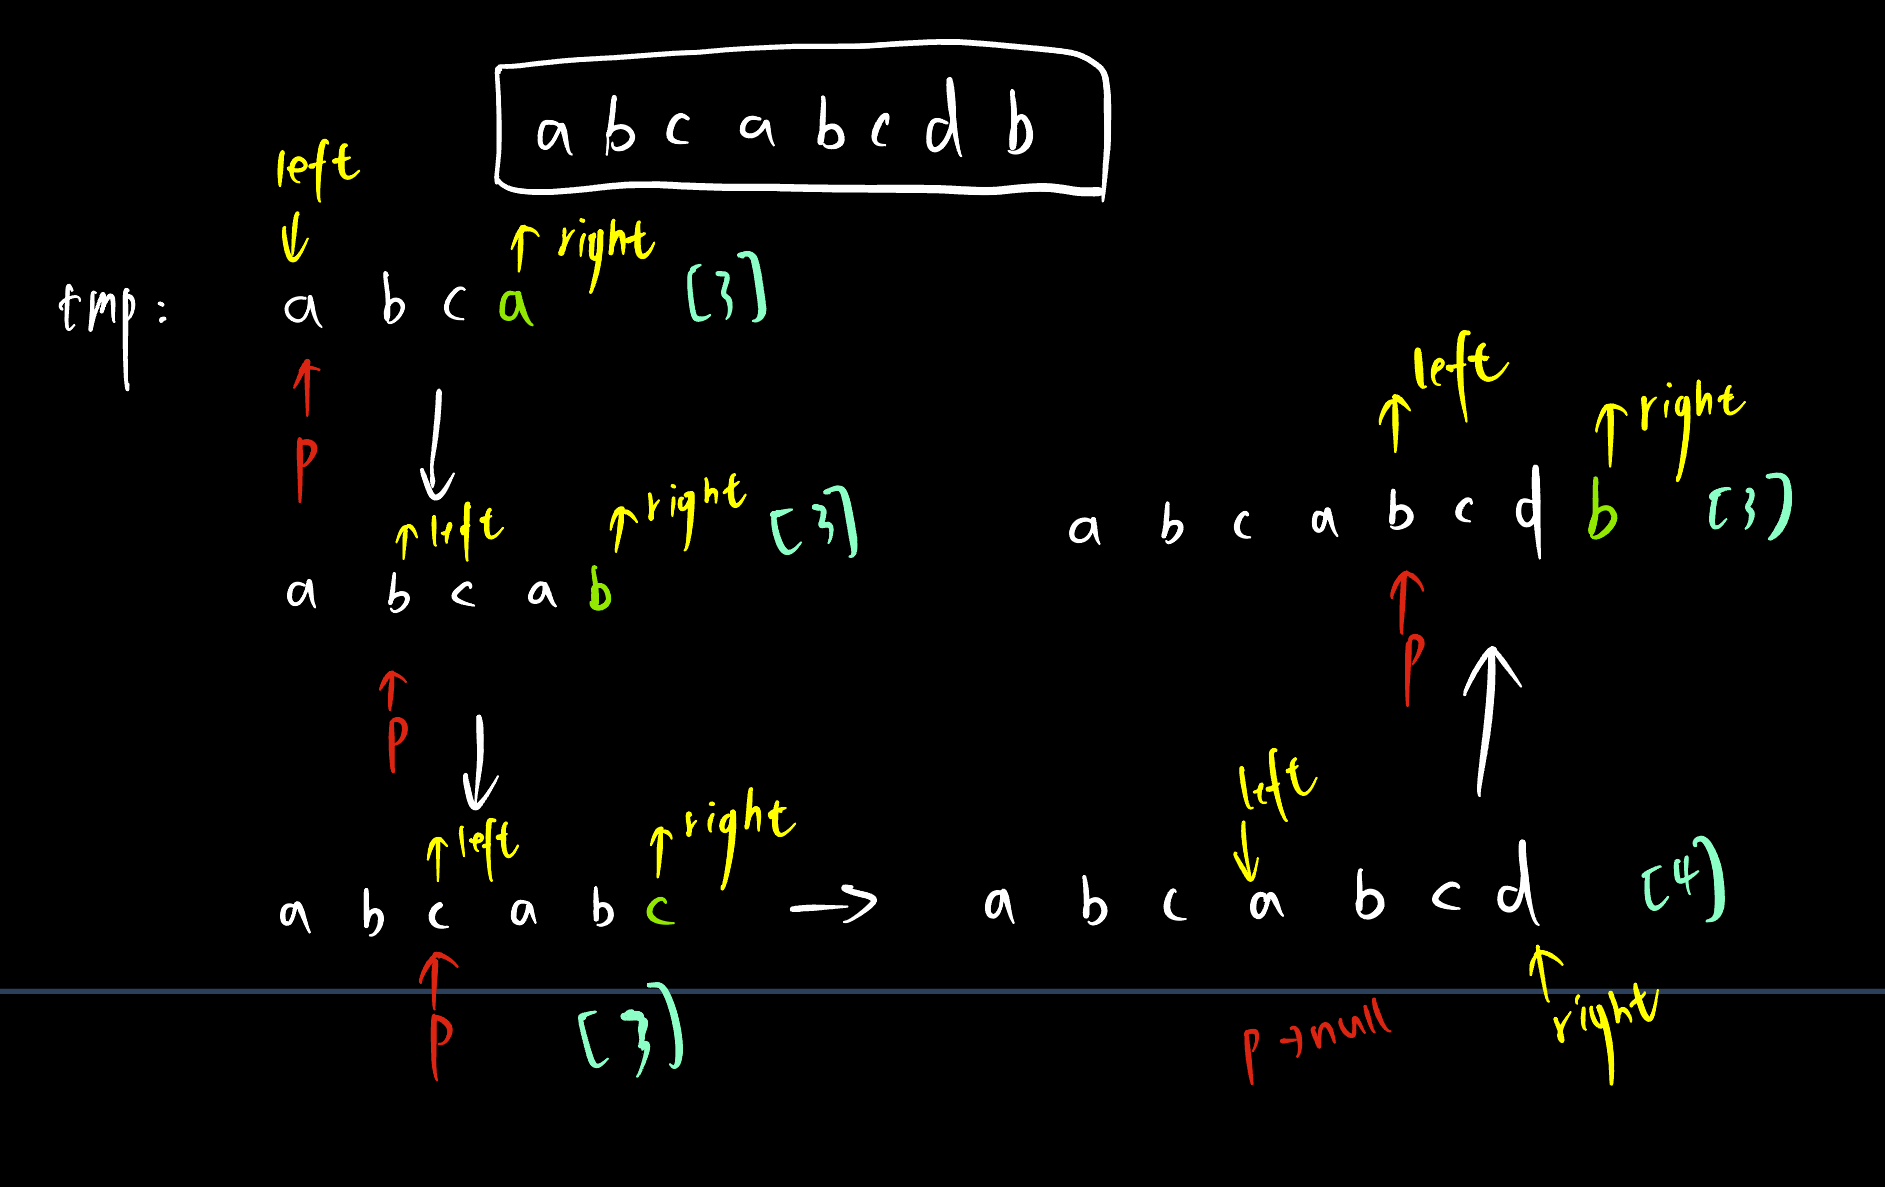 a b c a b c d b
left
right
tmp: a b c a [3]
p
left right [3]
a b c a b
p
left right
a b c a b c
p [3]
left
a b c a b c d [4]
p → null right
left right
a b c a b c d b [3]
p